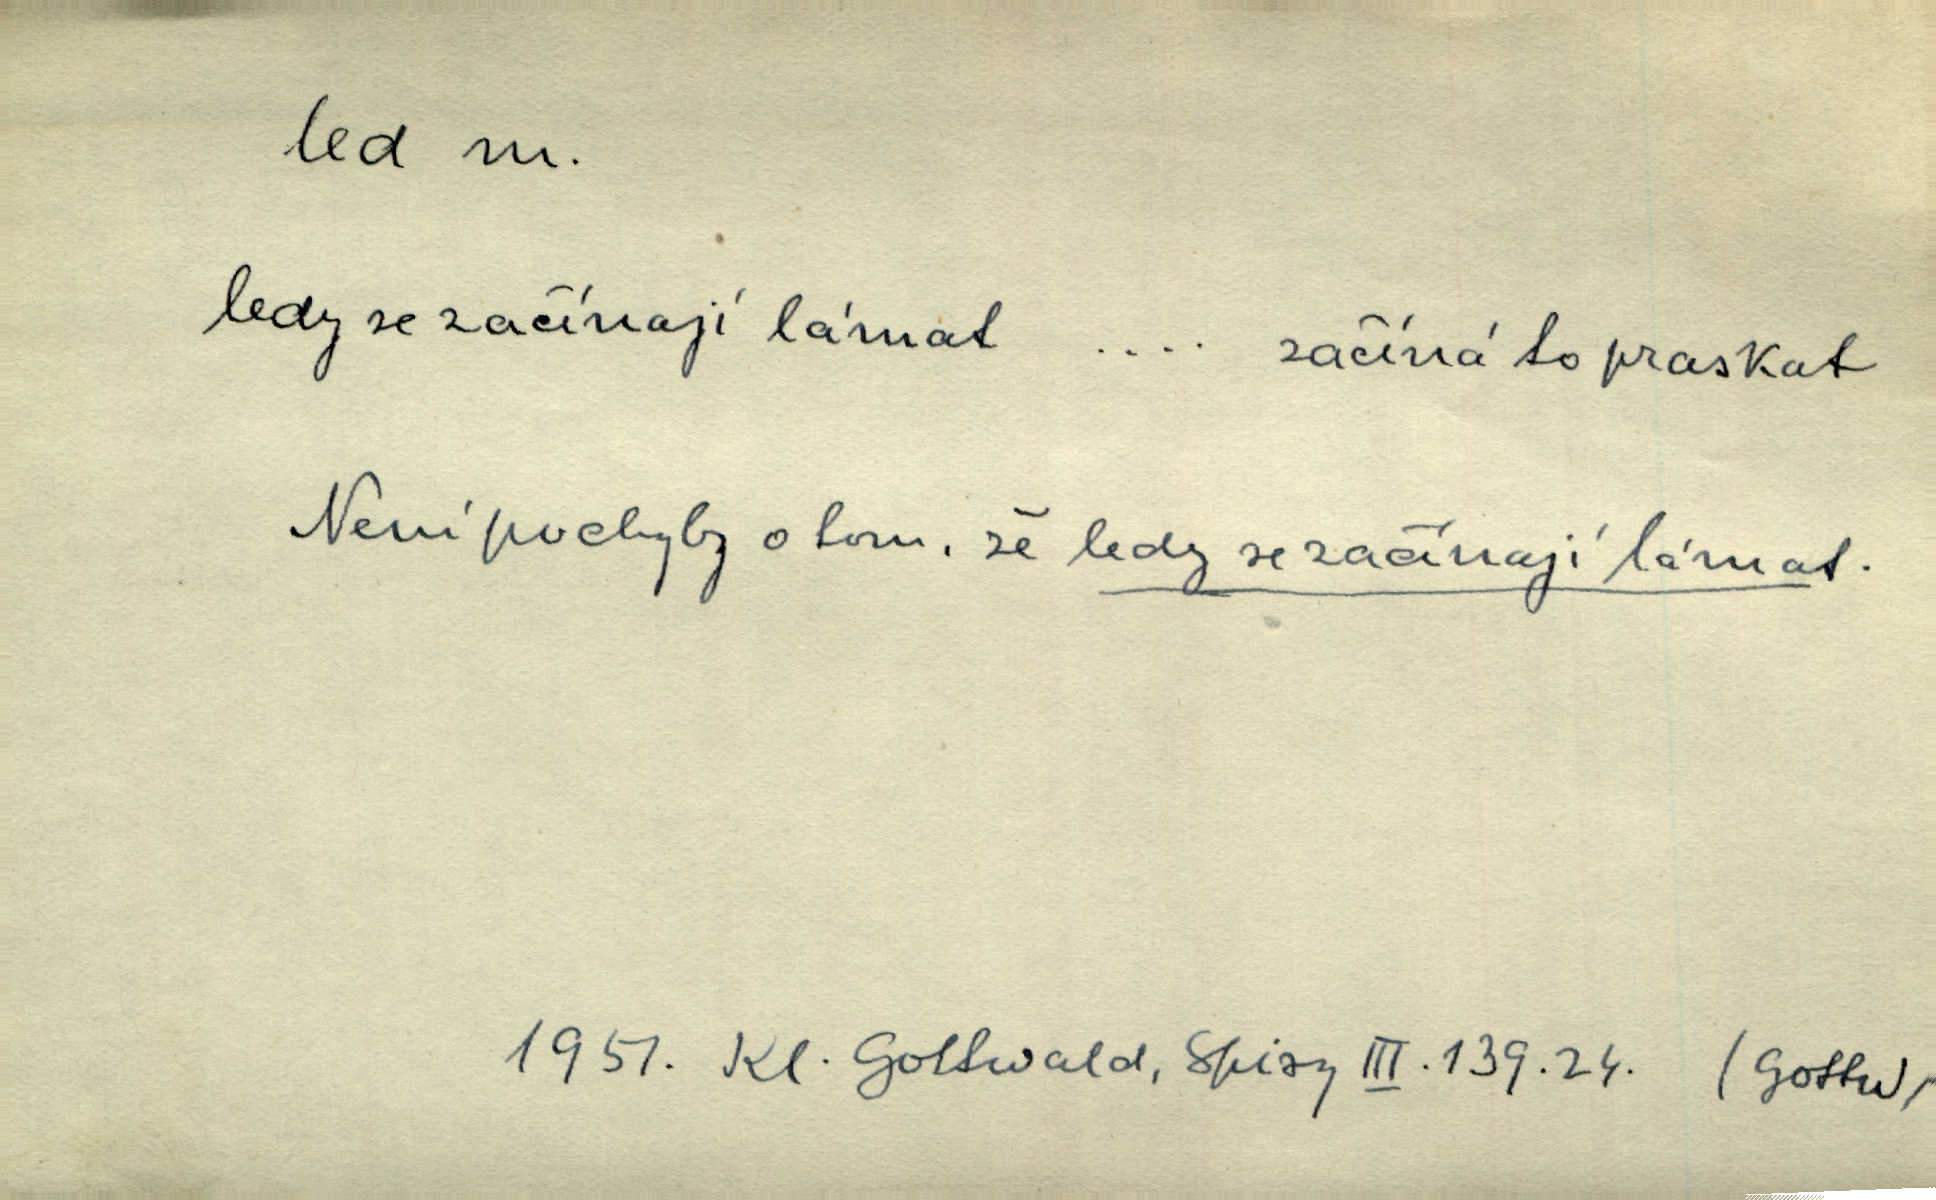 led m.
ledy se začínají lámat .... začíná to praskat
Není pochyby o tom, že ledy se začínají lámat.
1951. Kl. Gottwald, Spisy III. 139. 24. (Gottw)